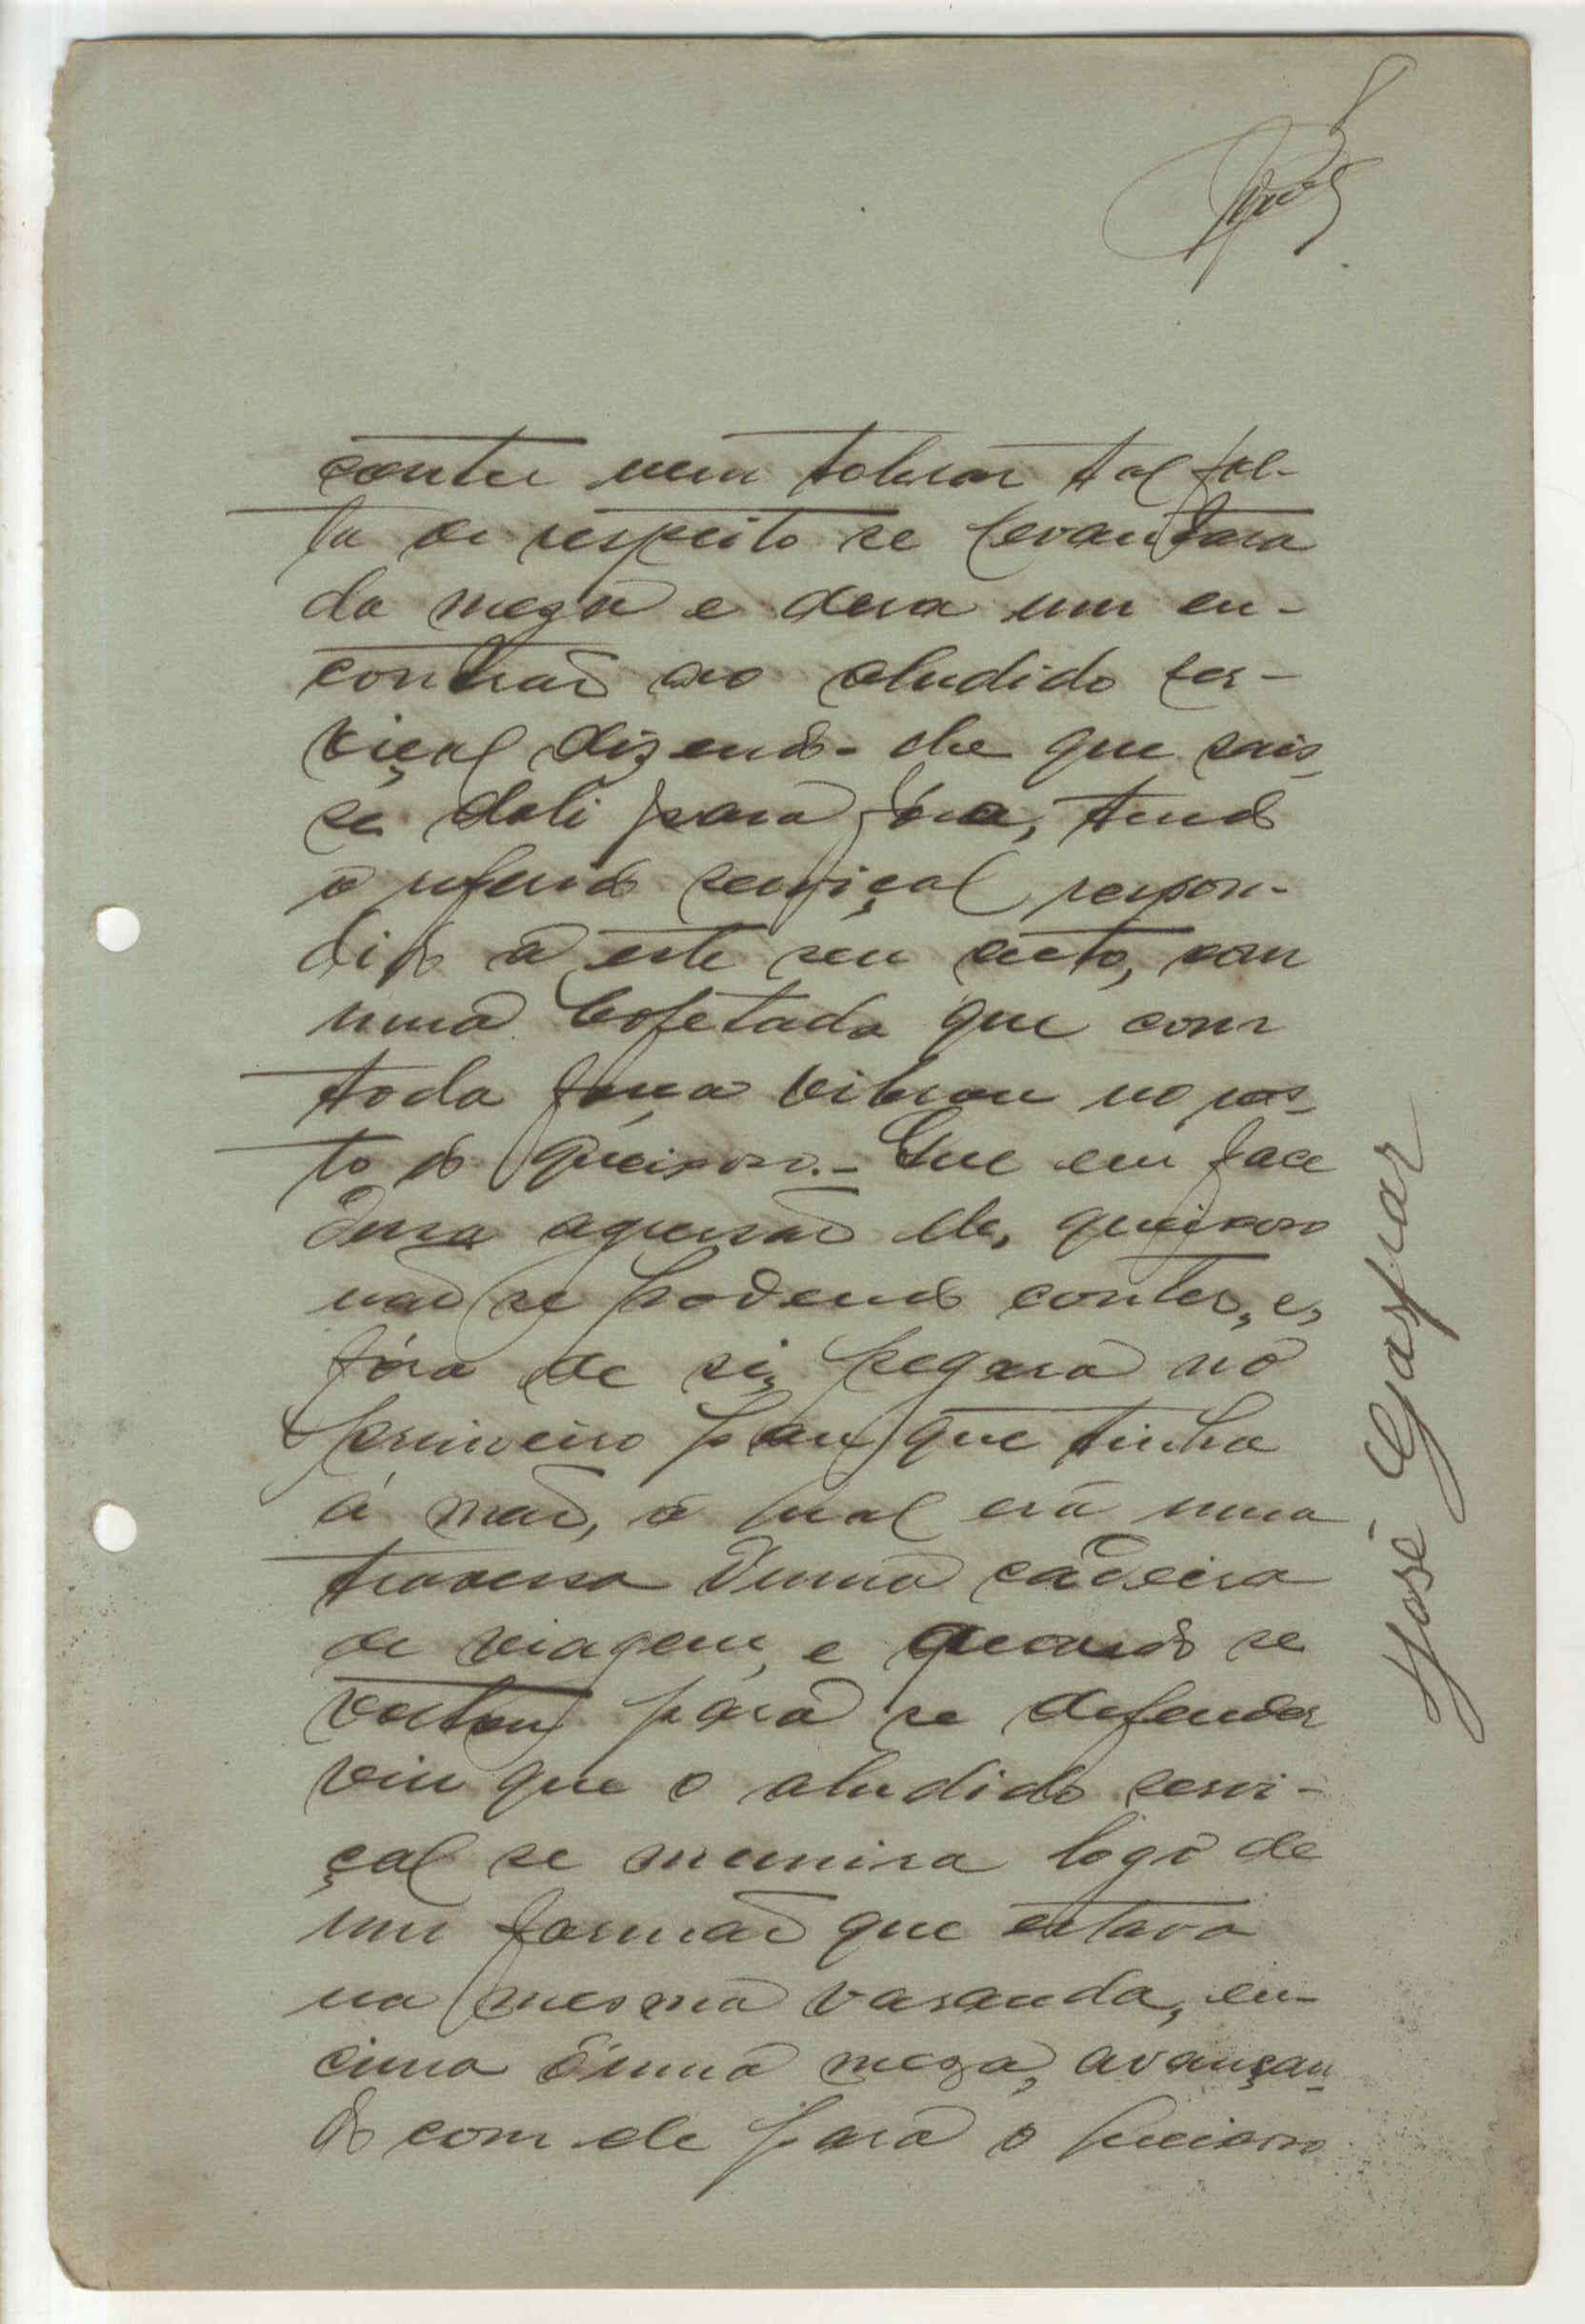 5
conter nem tolerar tal fal-
ta de respeito se levantara
da meza e dera um en-
contrão ao aludido ser-
viçal dizendo-lhe que sais-
se dali para fóra, tendo
o referido serviçal respon-
dido a este seu acto, com
uma bofetada que com
toda força vibrou no ros-
to do queixoso.- Que em face
dessa agressão ele, queixoso
não se podendo conter, e,
fóra de si, pegara no
primeiro pau que tinha
á mão, o qual era uma
travessa d'uma cadeira
de viagem, e quando se
voltou para se defender
viu que o aludido servi-
çal se munira logo de
um formão que estava
na mesma varanda, en-
cima d'uma meza, avançan-
do com ele para o queixoso
José Gaspar